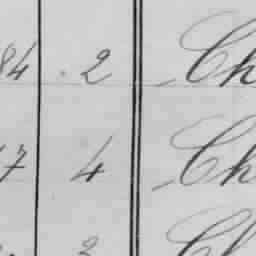 84 2 Ch
7 4 Ch
2 Ch